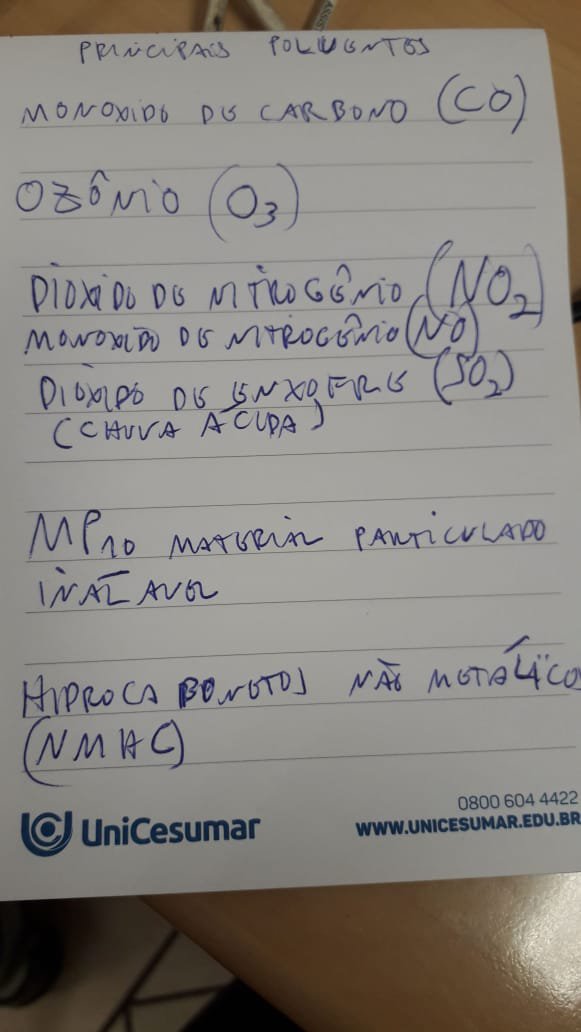 PRINCIPAIS POLUENTES
MONOXIDO DE CARBONO (CO)
OZÔNIO (O3)
DIOXIDO DE NITROGÊNIO (NO2)
MONOXIDO DE NITROGÊNIO (NO)
DIÓXIDO DE ENXOFRE (SO2)
(CHUVA ACIDA)
MP10 MATERIAL PARTICULADO
INALAVEL
HIDROCABONETOS NÃO METÁLICOS
(NMHC)
0800 604 4422
UniCesumar
WWW.UNICESUMAR.EDU.BR